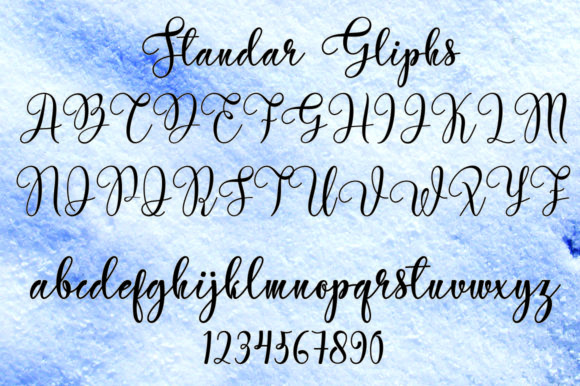 Standar Gliphs
ABCDEFGHIJKLM
NOPQRSTUVWXYZ
abcdefghijklmnopqrstuvwxyz
1234567890